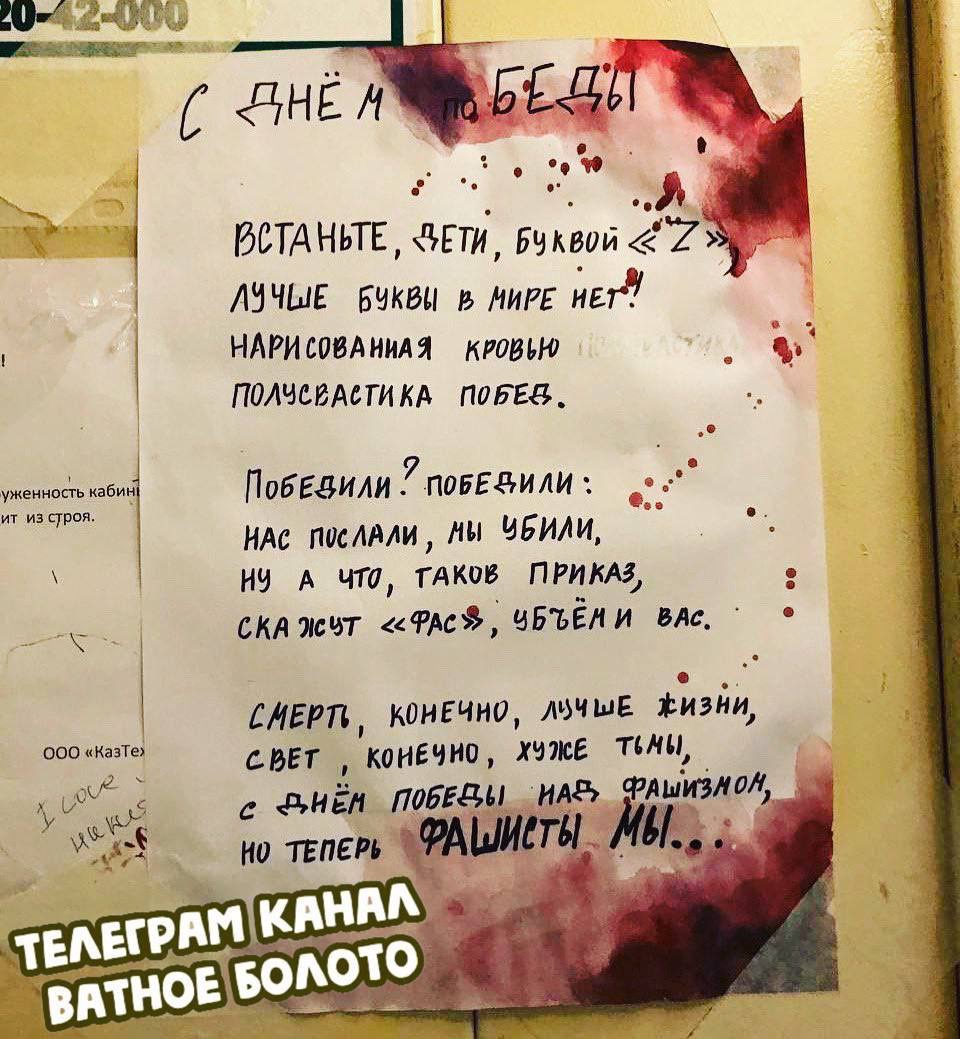 20-42-000
С ДНЁМ поБЕДЫ
ВСТАНЬТЕ, ДЕТИ, БУКВОЙ «Z»,
ЛУЧШЕ БУКВЫ В МИРЕ НЕТ!
НАРИСОВАННАЯ КРОВЬЮ
ПОЛУСВАСТИКА ПОБЕД.
ПОБЕДИЛИ? ПОБЕДИЛИ:
НАС ПОСЛАЛИ, МЫ УБИЛИ,
НУ А ЧТО, ТАКОВ ПРИКАЗ,
СКАЖУТ «ФАС», УБЪЁМ И ВАС.
СМЕРТЬ, КОНЕЧНО, ЛУЧШЕ ЖИЗНИ,
СВЕТ, КОНЕЧНО, ХУЖЕ ТЬМЫ,
С ДНЁМ ПОБЕДЫ НАД ФАШИЗМОМ,
НО ТЕПЕРЬ ФАШИСТЫ МЫ...
!
уженность кабин
ит из строя.
ООО «КазТех
I
ТЕЛЕГРАМ КАНАЛ
ВАТНОЕ БОЛОТО